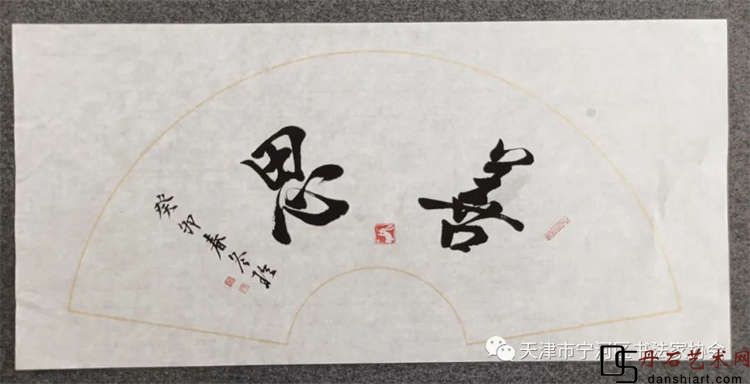 善思
癸卯春冬
天津市宁河区书法家协会
丹石艺术网
danshiart.com